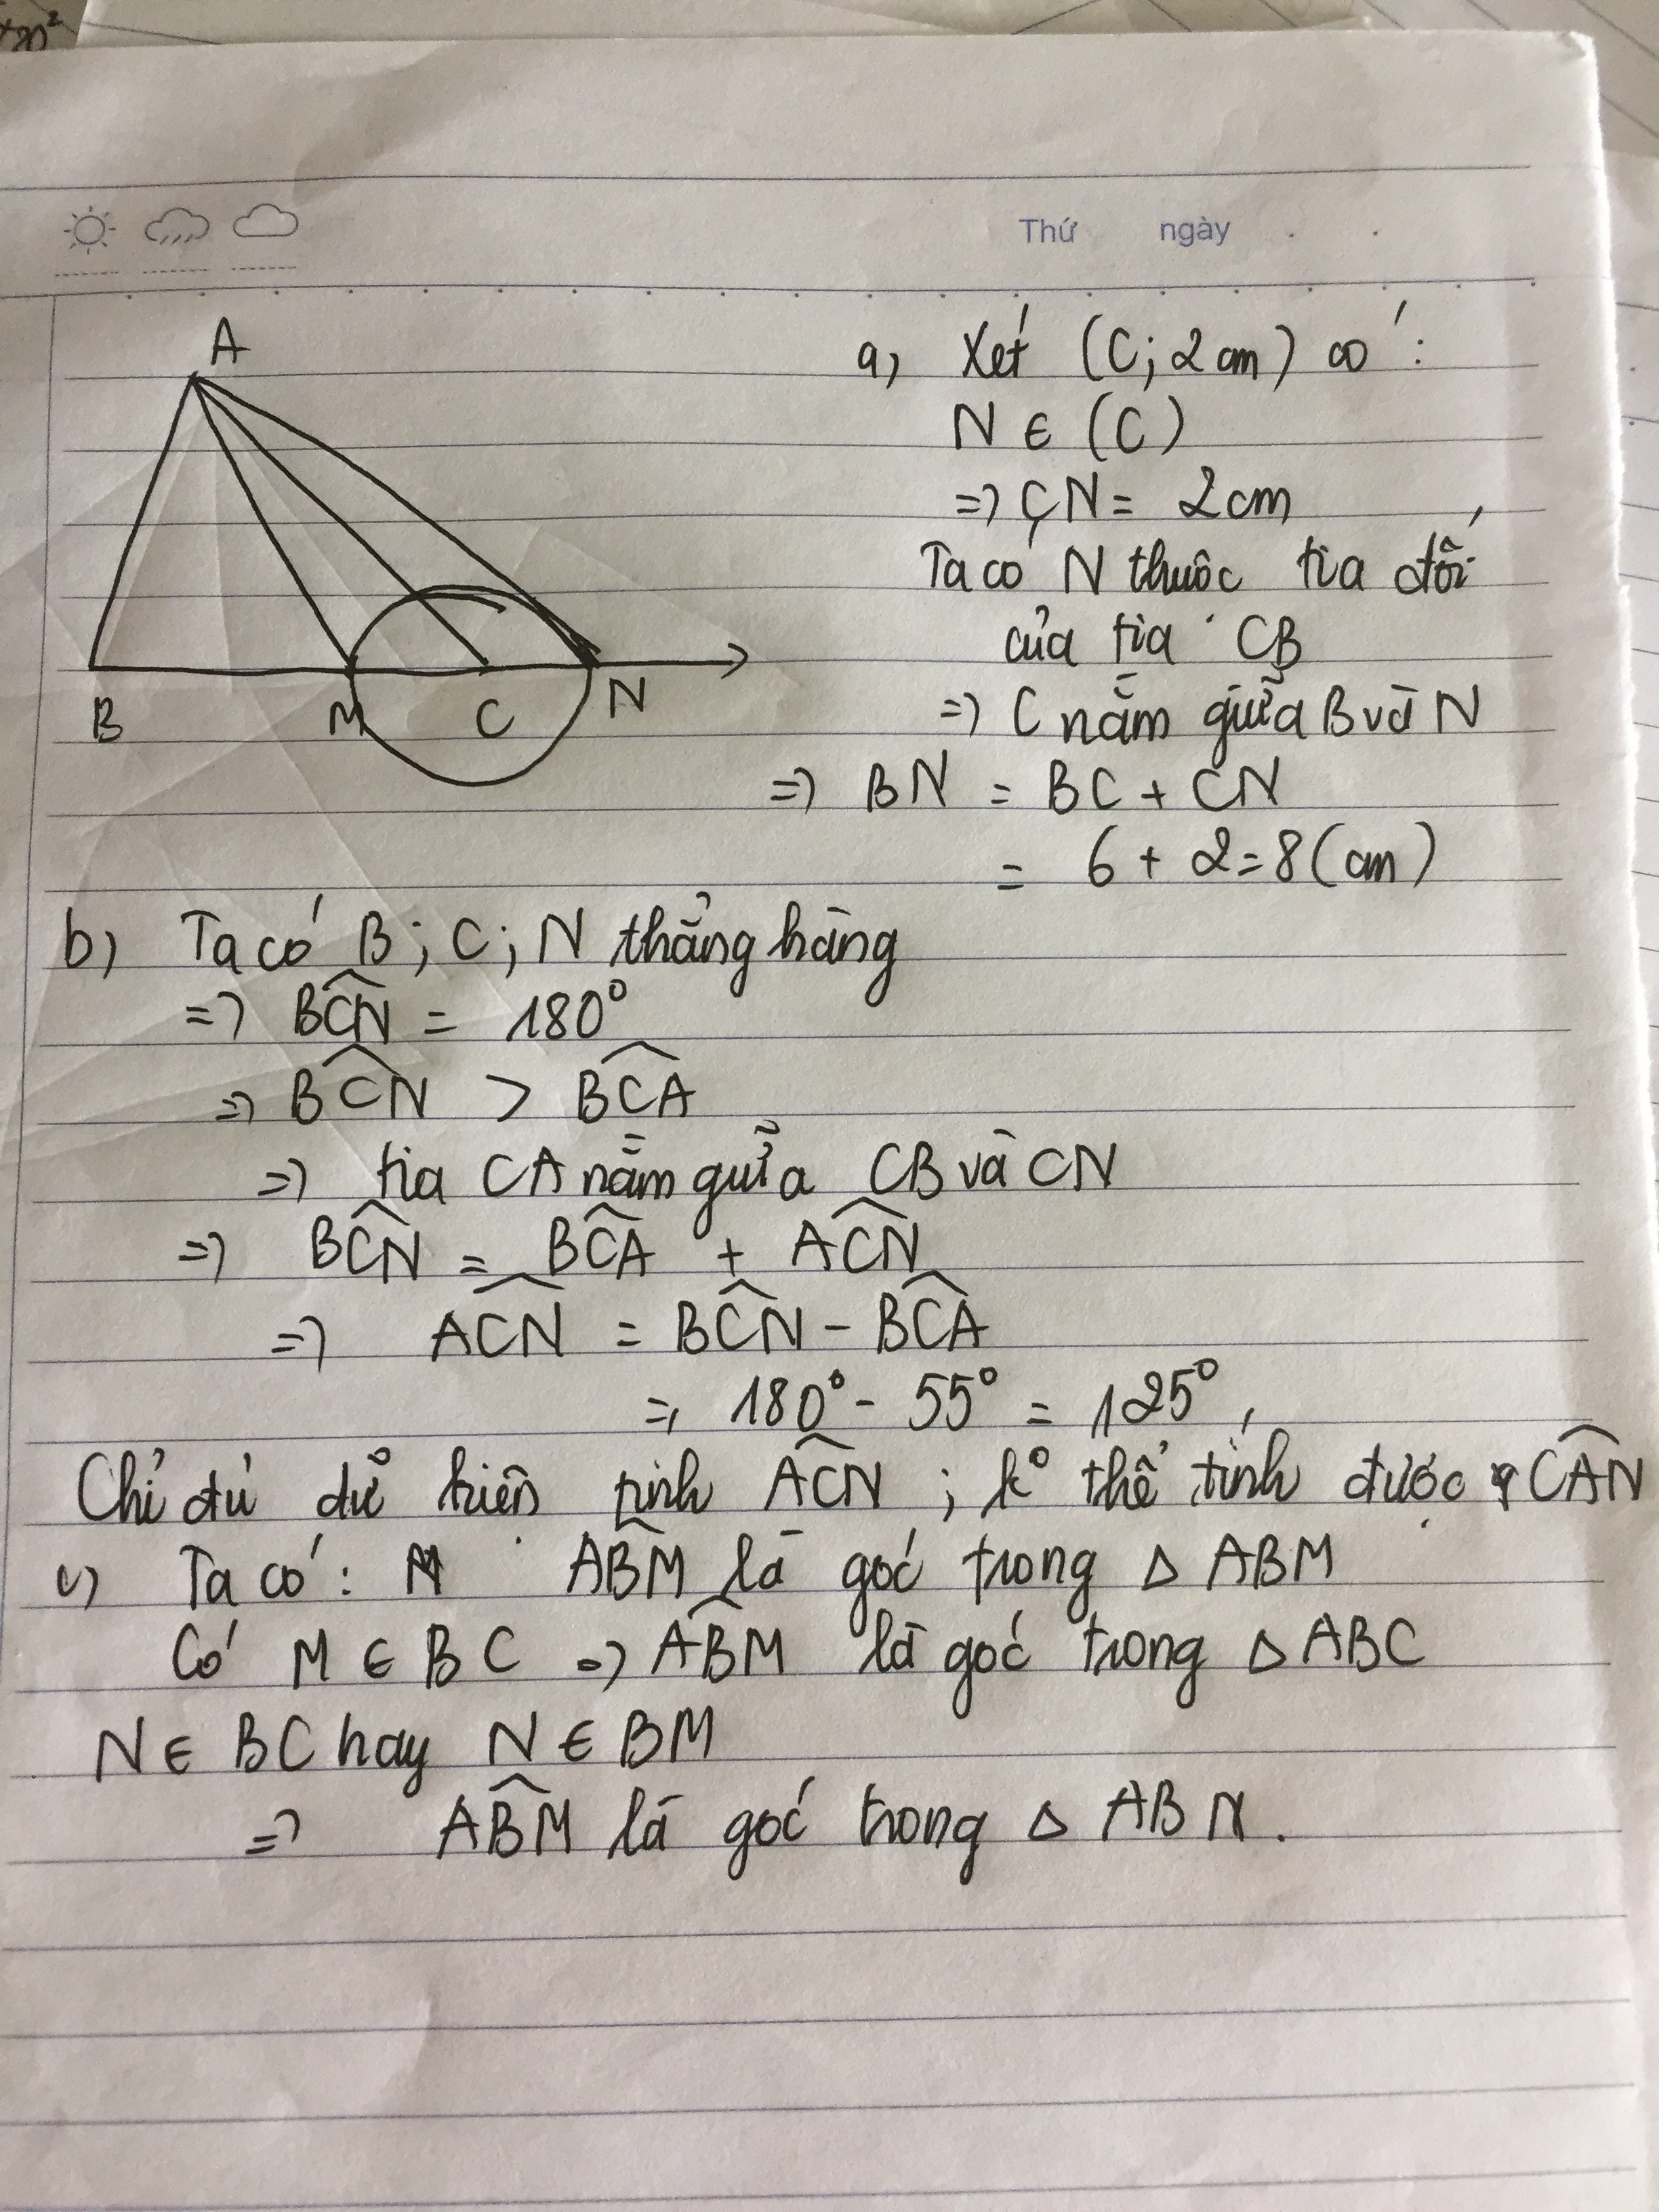 Thứ ngày
A
B M C N
a) Xét (C; 2cm) có :
N ∈ (C)
=> CN = 2cm
Ta có N thuộc tia đối
của tia CB
=> C nằm giữa B và N
=> BN = BC + CN
= 6 + 2 = 8 (cm)
b) Ta có B ; C ; N thẳng hàng
=> BĈN = 180°
=> BĈN > BĈA
=> tia CA nằm giữa CB và CN
=> BĈN = BĈA + AĈN
=> AĈN = BĈN - BĈA
= 180° - 55° = 125°
Chỉ đủ dữ kiện tính AĈN ; k° thể tính được CÂN
c) Ta có : AB̂M là góc trong Δ ABM
Có M ∈ BC => AB̂M là góc trong Δ ABC
N ∈ BC hay N ∈ BM
=> AB̂M là góc trong Δ ABN.